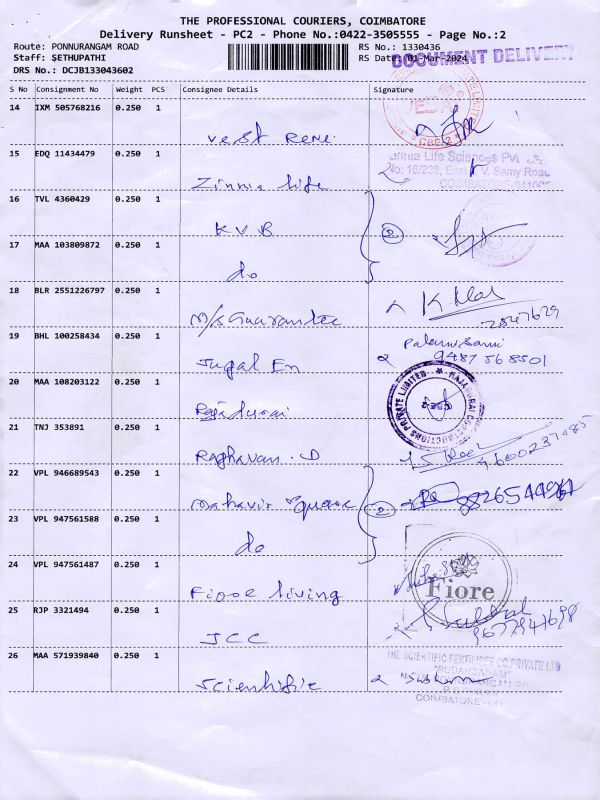 THE PROFESSIONAL COURIERS, COIMBATORE
Delivery Runsheet - PC2 - Phone No.:0422-3505555 - Page No.:2
Route: PONNURANGAM ROAD RS No.: 1330436
Staff: SETHUPATHI RS Date: 01-Mar-2024
DOCUMENT DELIVERY
DRS No.: DCJB133043602
S No Consignment No Weight PCS Consignee Details Signature
14 IXM 505768216 0.250 1
CBE-2
15 EDQ 11434479 0.250 1
Zinnia Life Sciences Pvt
No: 16/239, East T.V. Samy Road
COIMBATORE
Zinnia life
16 TVL 4360429 0.250 1
KVB
2
17 MAA 103809872 0.250 1
do
18 BLR 2551226797 0.250 1
M/s Guarantee
19 BHL 100258434 0.250 1
Palanisami
9487568501
Jugal En
20 MAA 108203122 0.250 1
PRIVATE LIMITED
Rajadurai
21 TNJ 353891 0.250 1
Raghavan. D
22 VPL 946689543 0.250 1
Mahavir Square
2
23 VPL 947561588 0.250 1
do
24 VPL 947561487 0.250 1
Fiore
Fiore living
25 RJP 3321494 0.250 1
JCC
26 MAA 571939840 0.250 1
THE SCIENTIFIC FERTILISER CO PRIVATE LTD
COIMBATORE
Scientific